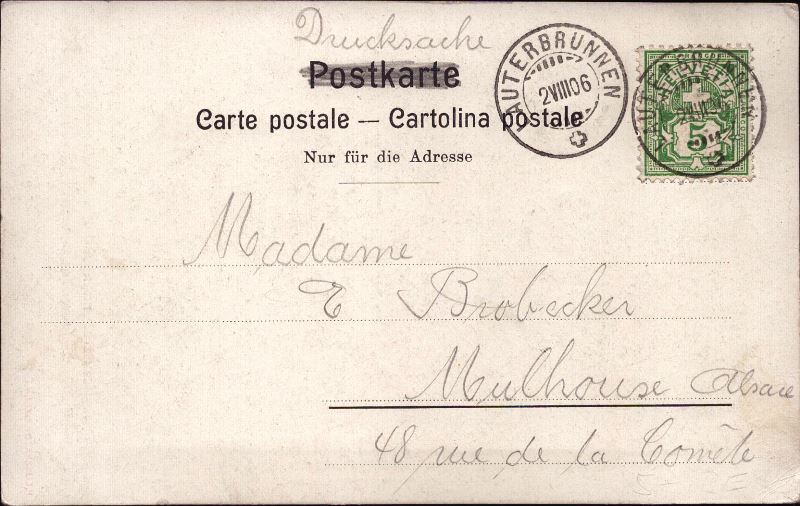 Drucksache
Postkarte
Carte postale — Cartolina postale
Nur für die Adresse
LAUTERBRUNNEN
2 VIII 06
HELVETIA
5
Madame
E Brobecker
Mulhouse Alsace
48 rue de la Comète